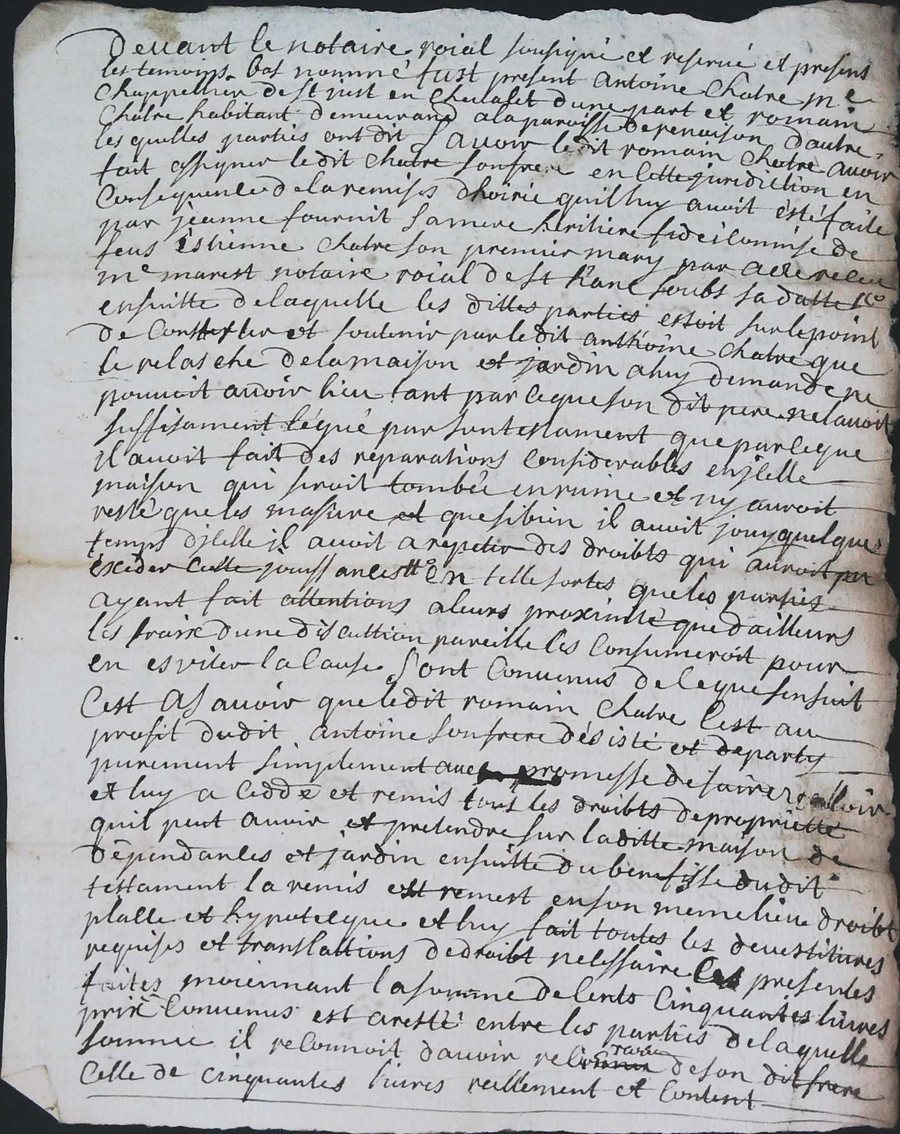 Devant le notaire roial sousigné et reservé et presens
les temoins bas nommé fust present Antoine Chatre me
Chappellier de st just en Chevalet dune part et romain
Chatre habitant demeurand a la paroisse de renaison dautre,
les quelles parties ont dit sçavoir ledit romain Chatre avoir
fait assigner ledit Chatre son frere en cette juridiction en
Consequence de la remises dhoirie quil luy avoit esté faite
par jeanne fournit sa mere heritiere fideicommise de
feus Estienne Chatre son premier mary par acte receu
me marest notaire roial de st h'ane soubs sa datte
ensuitte de laquelle les dittes parties estoit sur le point
de Contester et soutenir par ledit anthoine Chatre que
le relasche de la maison et jardin a luy demande ne
pouvoit avoir lieu tant par ce que son dit pere ne lavoit
suffisament légué par son testament que parce que
il avoit fait des reparations Considerables en jcelle
maison qui seroit tombée en ruine et ny auroit
resté que les masure et que si bien il avoit jouy quelque
temps djcelle il avoit a repeter des droibts qui auroit pu
exceder cette jouissances en telle sortes que les parties
ayant fait attentions a leurs proximité que dailleurs
les fraix dune discuttion pareille les Consumeroit pour
en esviter la Cause sont Convenus de ce que sensuit
Cest As avoir que ledit romain Chatre sest au
profit dudit antoine son frere désisté et departy
purement simplement avec promesse de faire valloir
et luy a Ceddé et remis tous les droibts de propriette
quil peut avoir et pretendre sur la ditte maison de
dépendances et jardin ensuitte du benefisse dudit
testament la remis et remest en son meme lieu droibt
place et hypotecque et luy fait toutes les devestitures
requises et translattions de droibt necessaire Les presentes
faites moiennant la somme de Cents Cinquantes livres
prix Convenus est aresté entre les parties de laquelle
somme il reconnoit davoir receu de son dit frere
Celle de cinquantes livres reellement et Content